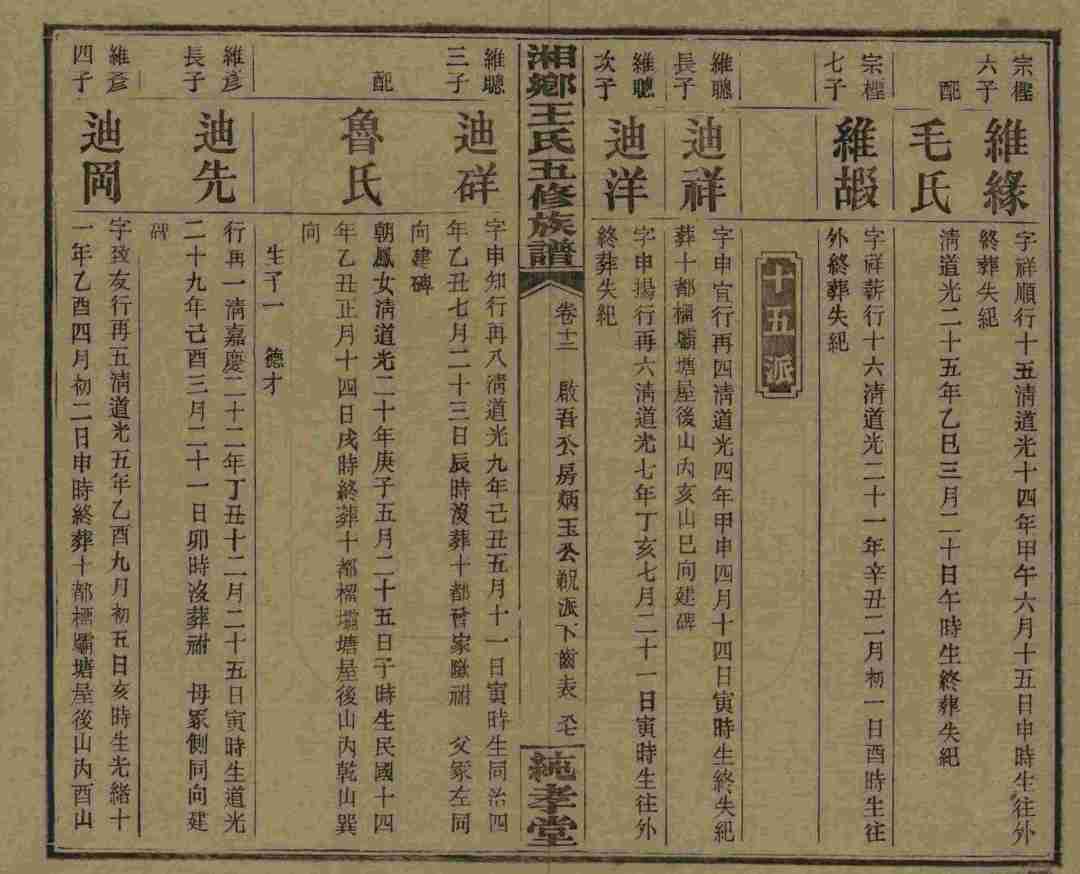 宗樫
六子
維緣
字祥順行十五淸道光十四年甲午六月十五日申時生往外
終葬失紀
配
毛氏
淸道光二十五年乙巳三月二十日午時生終葬失紀
宗樫
七子
維嘏
字祥薪行十六淸道光二十一年辛丑二月初一日酉時生往
外終葬失紀
十五派
維聰
長子
迪祥
字申宜行再四淸道光四年甲申四月十四日寅時生終失紀
葬十都橊壩塘屋後山內亥山巳向建碑
維聰
次子
迪洋
字申揚行再六淸道光七年丁亥七月二十一日寅時生往外
終葬失紀
湘鄉王氏五修族譜
卷十二
啟吾公房炳玉公覬派下齒表
純孝堂
維聰
三子
迪硑
字申知行再八淸道光九年己丑五月十一日寅時生同治四
年乙丑七月二十三日辰時沒葬十都曾家 祔 父冢左同
向建碑
配
魯氏
朝鳳女淸道光二十年庚子五月二十五日子時生民國十四
年乙丑正月十四日戌時終葬十都橊壩塘屋後山內乾山巽
向
生子一 德才
維彥
長子
迪先
行再一淸嘉慶二十二年丁丑十二月二十五日寅時生道光
二十九年己酉三月二十一日卯時沒葬祔 母冢側同向建
碑
維彥
四子
迪岡
字致友行再五淸道光五年乙酉九月初五日亥時生光緒十
一年乙酉四月初二日申時終葬十都橊壩塘屋後山內酉山